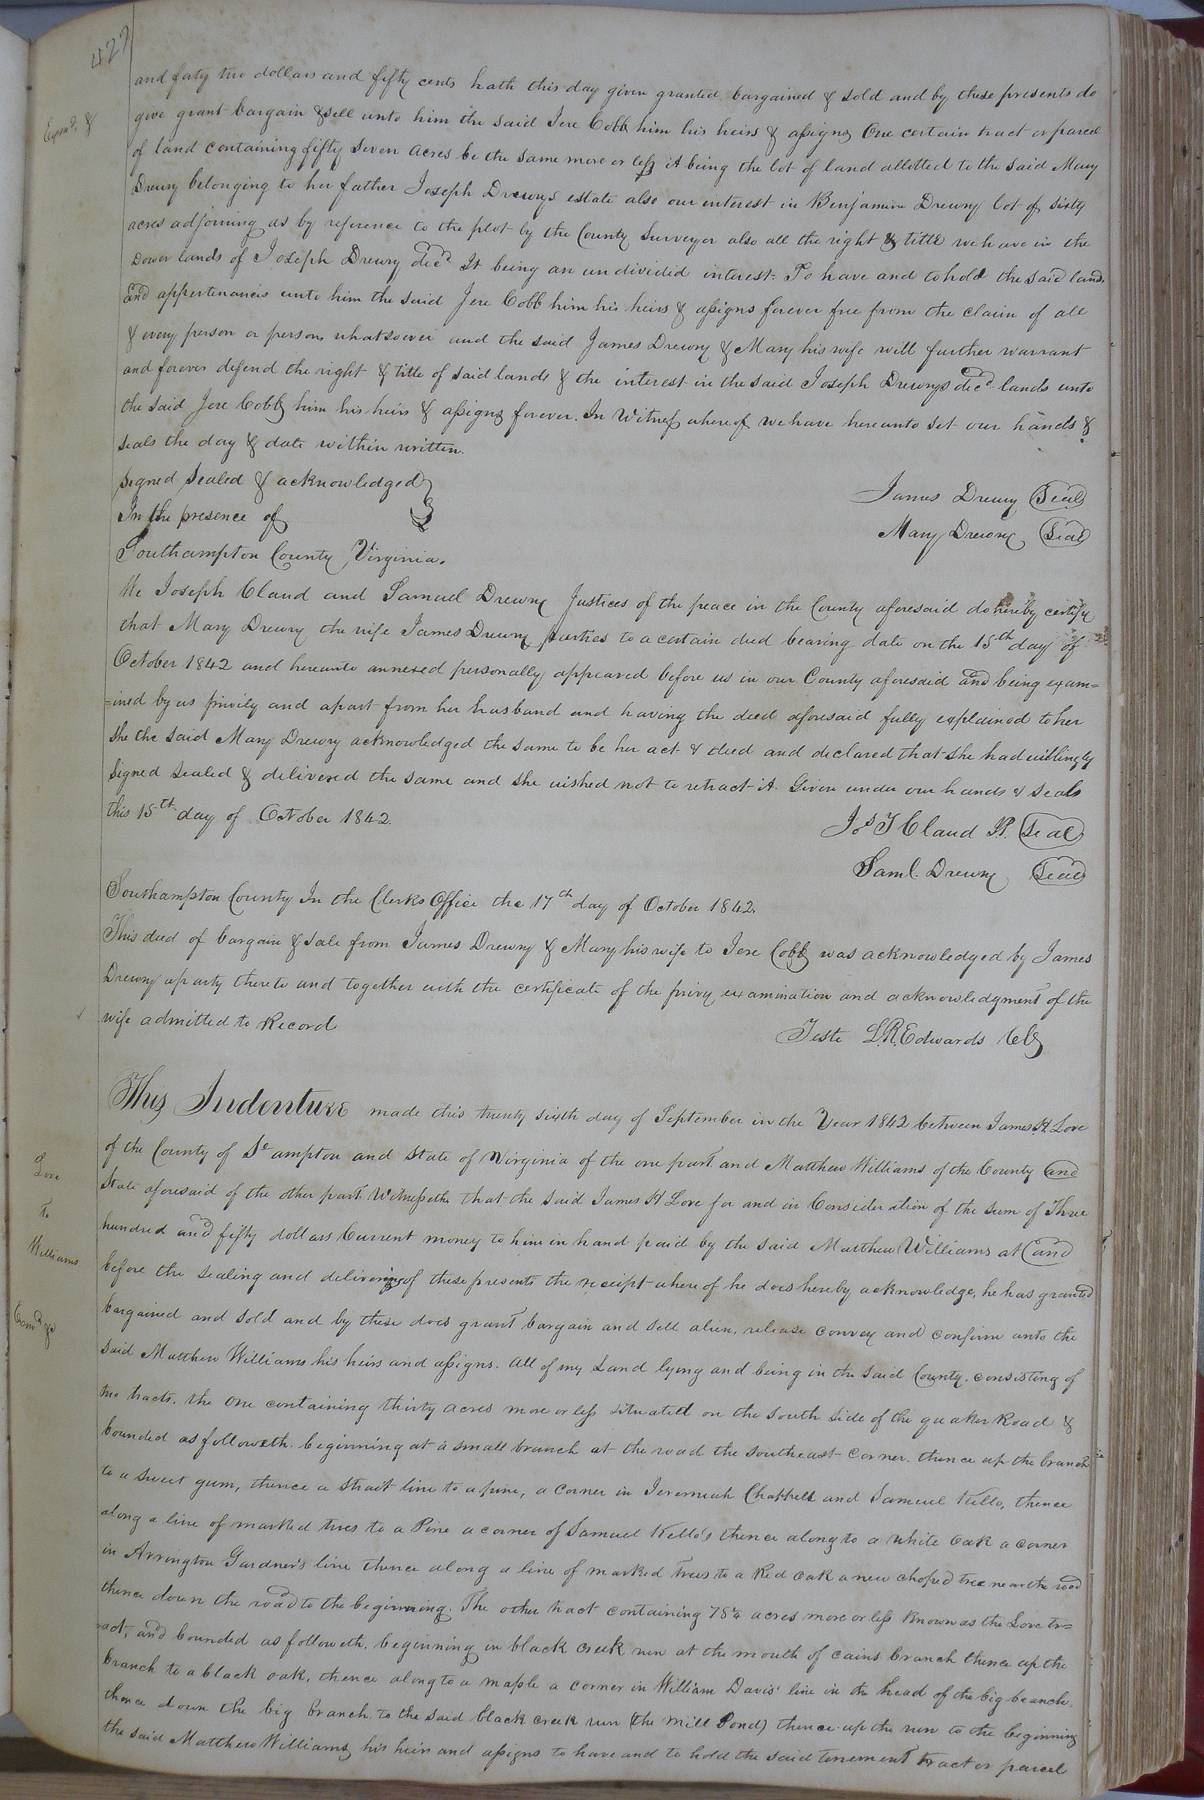 427
and forty two dollars and fifty cents hath this day given granted bargained & sold and by these presents do
give grant bargain & sell unto him the said Jere Cobb him his heirs & assigns One certain tract or parcel
Examd. &
of land containing fifty seven acres be the same more or less it being the lot of land allotted to the said Mary
Drewry belonging to her father Joseph Drewrys estate also our interest in Benjamin Drewry lot of sixty
acres adjoining as by reference to the plot by the County Surveyor also all the right & title we have in the
Dower lands of Joseph Drewry decd. It being an undivided interest. To have and to hold the said lands
and appertenances unto him the said Jere Cobb him his heirs & assigns forever free from the claim of all
& every person or persons whatsoever and the said James Drewry & Mary his wife will further warrant
and forever defend the right & title of said lands & the interest in the said Joseph Drewrys decd lands unto
the said Jere Cobb him his heirs & assigns forever. In Witness whereof we have hereunto set our hands &
seals the day & date within written.
Signed Sealed & acknowledged
In the presence of
James Drewry Seal
Mary Drewry Seal
Southampton County Virginia.
We Joseph Claud and Samuel Drewry Justices of the peace in the County aforesaid do hereby certify
that Mary Drewry the wife James Drewry parties to a certain deed bearing date on the 15th day of
October 1842 and hereunto annexed personally appeared before us in our County aforesaid and being exam=
=ined by us privily and apart from her husband and having the deed aforesaid fully explained to her
she the said Mary Drewry acknowledged the same to be her act & deed and declared that she had willingly
signed sealed & delivered the same and she wished not to retract it. Given under our hands & seals
this 15th day of October 1842.
Jos T Claud JP. Seal
Saml. Drewry Seal
Southampton County In the Clerks Office the 17th day of October 1842.
This deed of bargain & sale from James Drewry & Mary his wife to Jere Cobb was acknowledged by James
Drewry a party thereto and together with the certificate of the privy examination and acknowledgment of the
wife admitted to Record
Teste L.R. Edwards Clk
This Indenture made this twenty sixth day of September in the Year 1842 between James H Love
of the County of So ampton and State of Virginia of the one part and Matthew Williams of the County and
Love
To
Williams
State aforesaid of the other part. Witnesseth that the said James H Love for and in Consideration of the sum of Three
hundred and fifty dollars Current money to him in hand paid by the said Matthew Williams at and
before the sealing and delivering of these presents the receipt whereof he does hereby acknowledge, he has granted
Examd &
bargained and sold and by these does grant bargain and sell alien, release convey and confirm unto the
said Matthew Williams his heirs and assigns. all of my Land lying and being in the said County. consisting of
two tracts. the one containing thirty acres more or less situated on the south side of the quaker Road &
bounded as followeth. beginning at a small branch at the road the southeast corner. thence up the branch
to a sweet gum, thence a strait line to a pine, a corner in Jeremiah Chappell and Samuel Kello, thence
along a line of marked trees to a Pine a corner of Samuel Kello's thence along to a white oak a corner
in Arrington Gardner's line thence along a line of marked Trees to a Red oak a new choped tree near the road
thence down the road to the beginning. The other tract containing 78¼ acres more or less Known as the Love tr=
=act, and bounded as followeth, beginning in black creek run at the mouth of cains branch thence up the
branch to a black oak, thence along to a maple a corner in William Davis' line in the head of the big branch.
thence down the big branch to the said black creek run (the Mill Pond) thence up the run to the beginning
the said Matthew Williams his heirs and assigns to have and to hold the said tenement tract or parcel